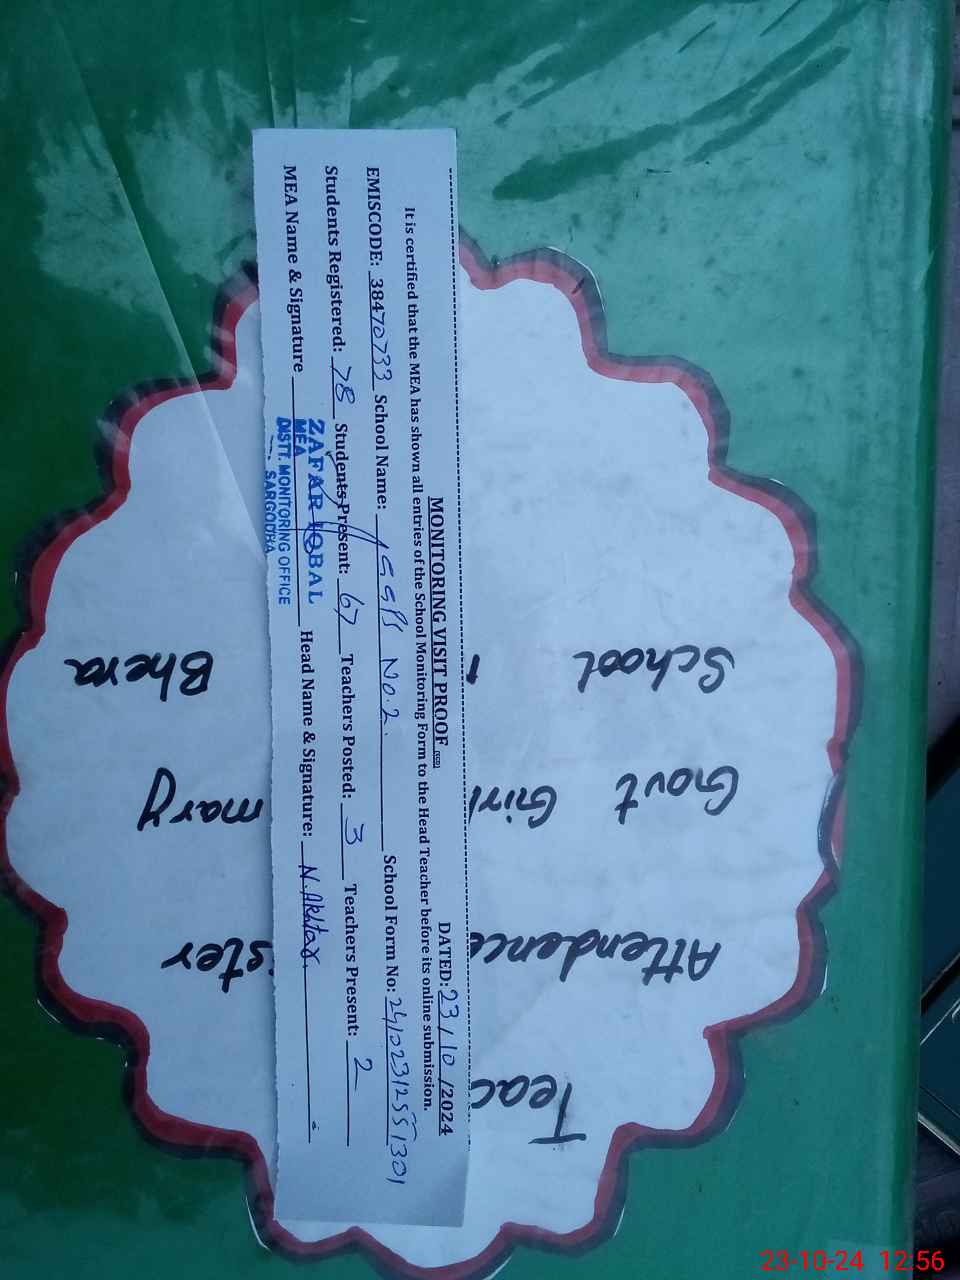 MONITORING VISIT PROOF
DATED: 23/10/2024
It is certified that the MEA has shown all entries of the School Monitoring Form to the Head Teacher before its online submission.
EMISCODE: 38470733 School Name: GGPS No.2. School Form No: 24102312551301
Students Registered: 78 Students Present: 67 Teachers Posted: 3 Teachers Present: 2
MEA Name & Signature Head Name & Signature: N. Akhtar.
ZAFAR IQBAL
MEA
DISTT. MONITORING OFFICE
SARGODHA
Teac
Attendence ister
Govt Girl mary
School Bhera
23-10-24 12:56